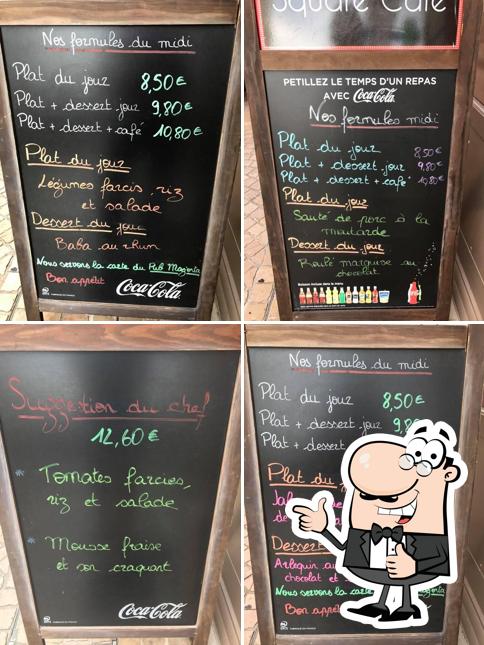 Nos formules du midi
Plat du jour 8,50€
Plat + dessert jour 9,80€
Plat + dessert + café 10,80€
Plat du jour
Légumes farcis, riz
et salade
Dessert du jour
Baba au rhum
Nous servons la carte du Pub Magenta
Bon appétit
Coca-Cola
Square Café
PETILLEZ LE TEMPS D'UN REPAS
AVEC Coca-Cola
Nos formules midi
Plat du jour 8,50€
Plat + dessert jour 9,80€
Plat + dessert + café 10,80€
Plat du jour
Sauté de porc à la
moutarde
Dessert du jour
Roulé marquise au
chocolat
Boisson incluse dans le menu
Suggestion du chef
12,60€
* Tomates farcies,
riz et salade
* Mousse fraise
et son craquant
Coca-Cola
Nos formules du midi
Plat du jour 8,50€
Plat + dessert jour 9,8
Plat + dessert
Plat du
de
Dessert
Arlequin au
chocolat et
Nous servons la carte Magenta
Bon appétit